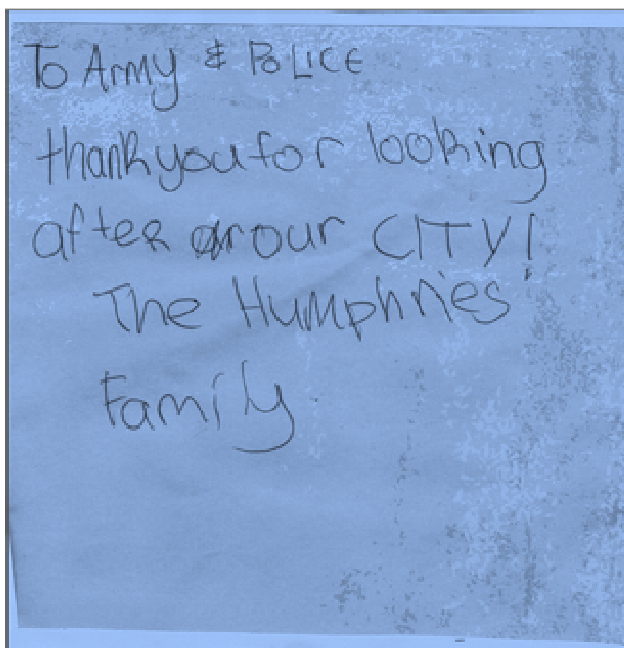 To Army & POLICE
thank you for looking
after our CITY!
The Humphries
Family